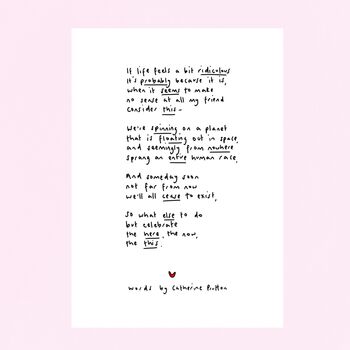 If life feels a bit ridiculous
It's probably because it is,
when it seems to make
no sense at all my friend
consider this -
We're spinning on a planet
that is floating out in space,
and seemingly from nowhere
sprang an entire human race.
And someday soon
not far from now
we'll all cease to exist,
So what else to do
but celebrate
the here, the now,
the this.
words by Catherine Prutton